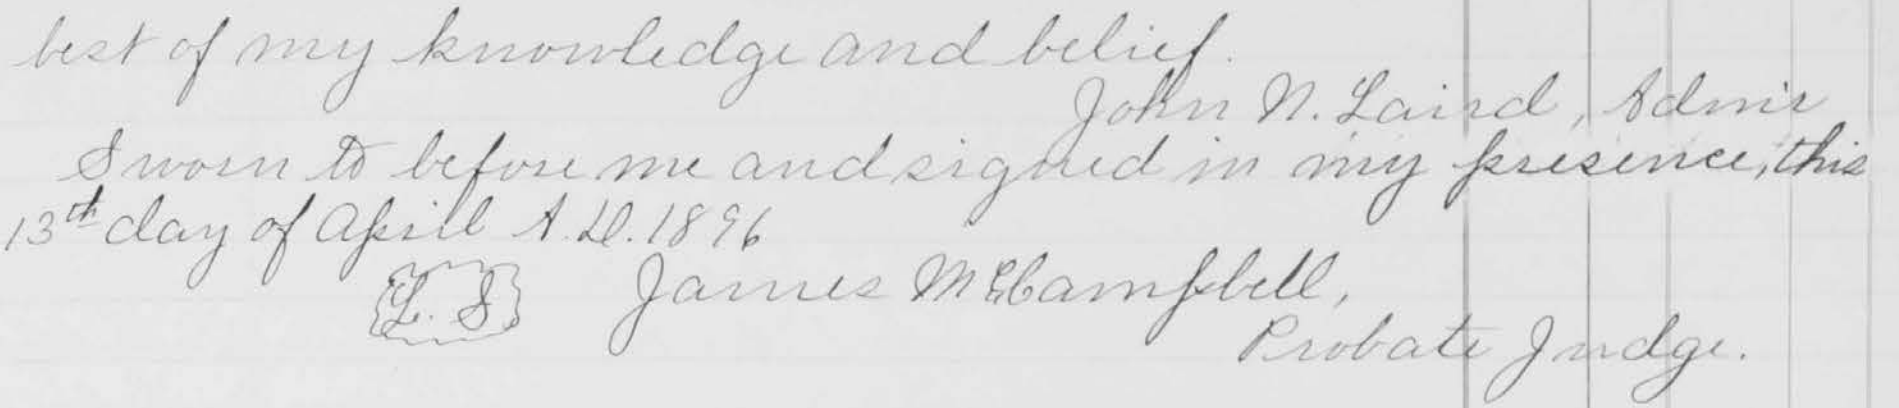 best of my knowledge and belief.
John N. Laird, Admir
Sworn to before me and signed in my presence, this
13th day of April A.D. 1896
L. S James McCampbell,
Probate Judge.